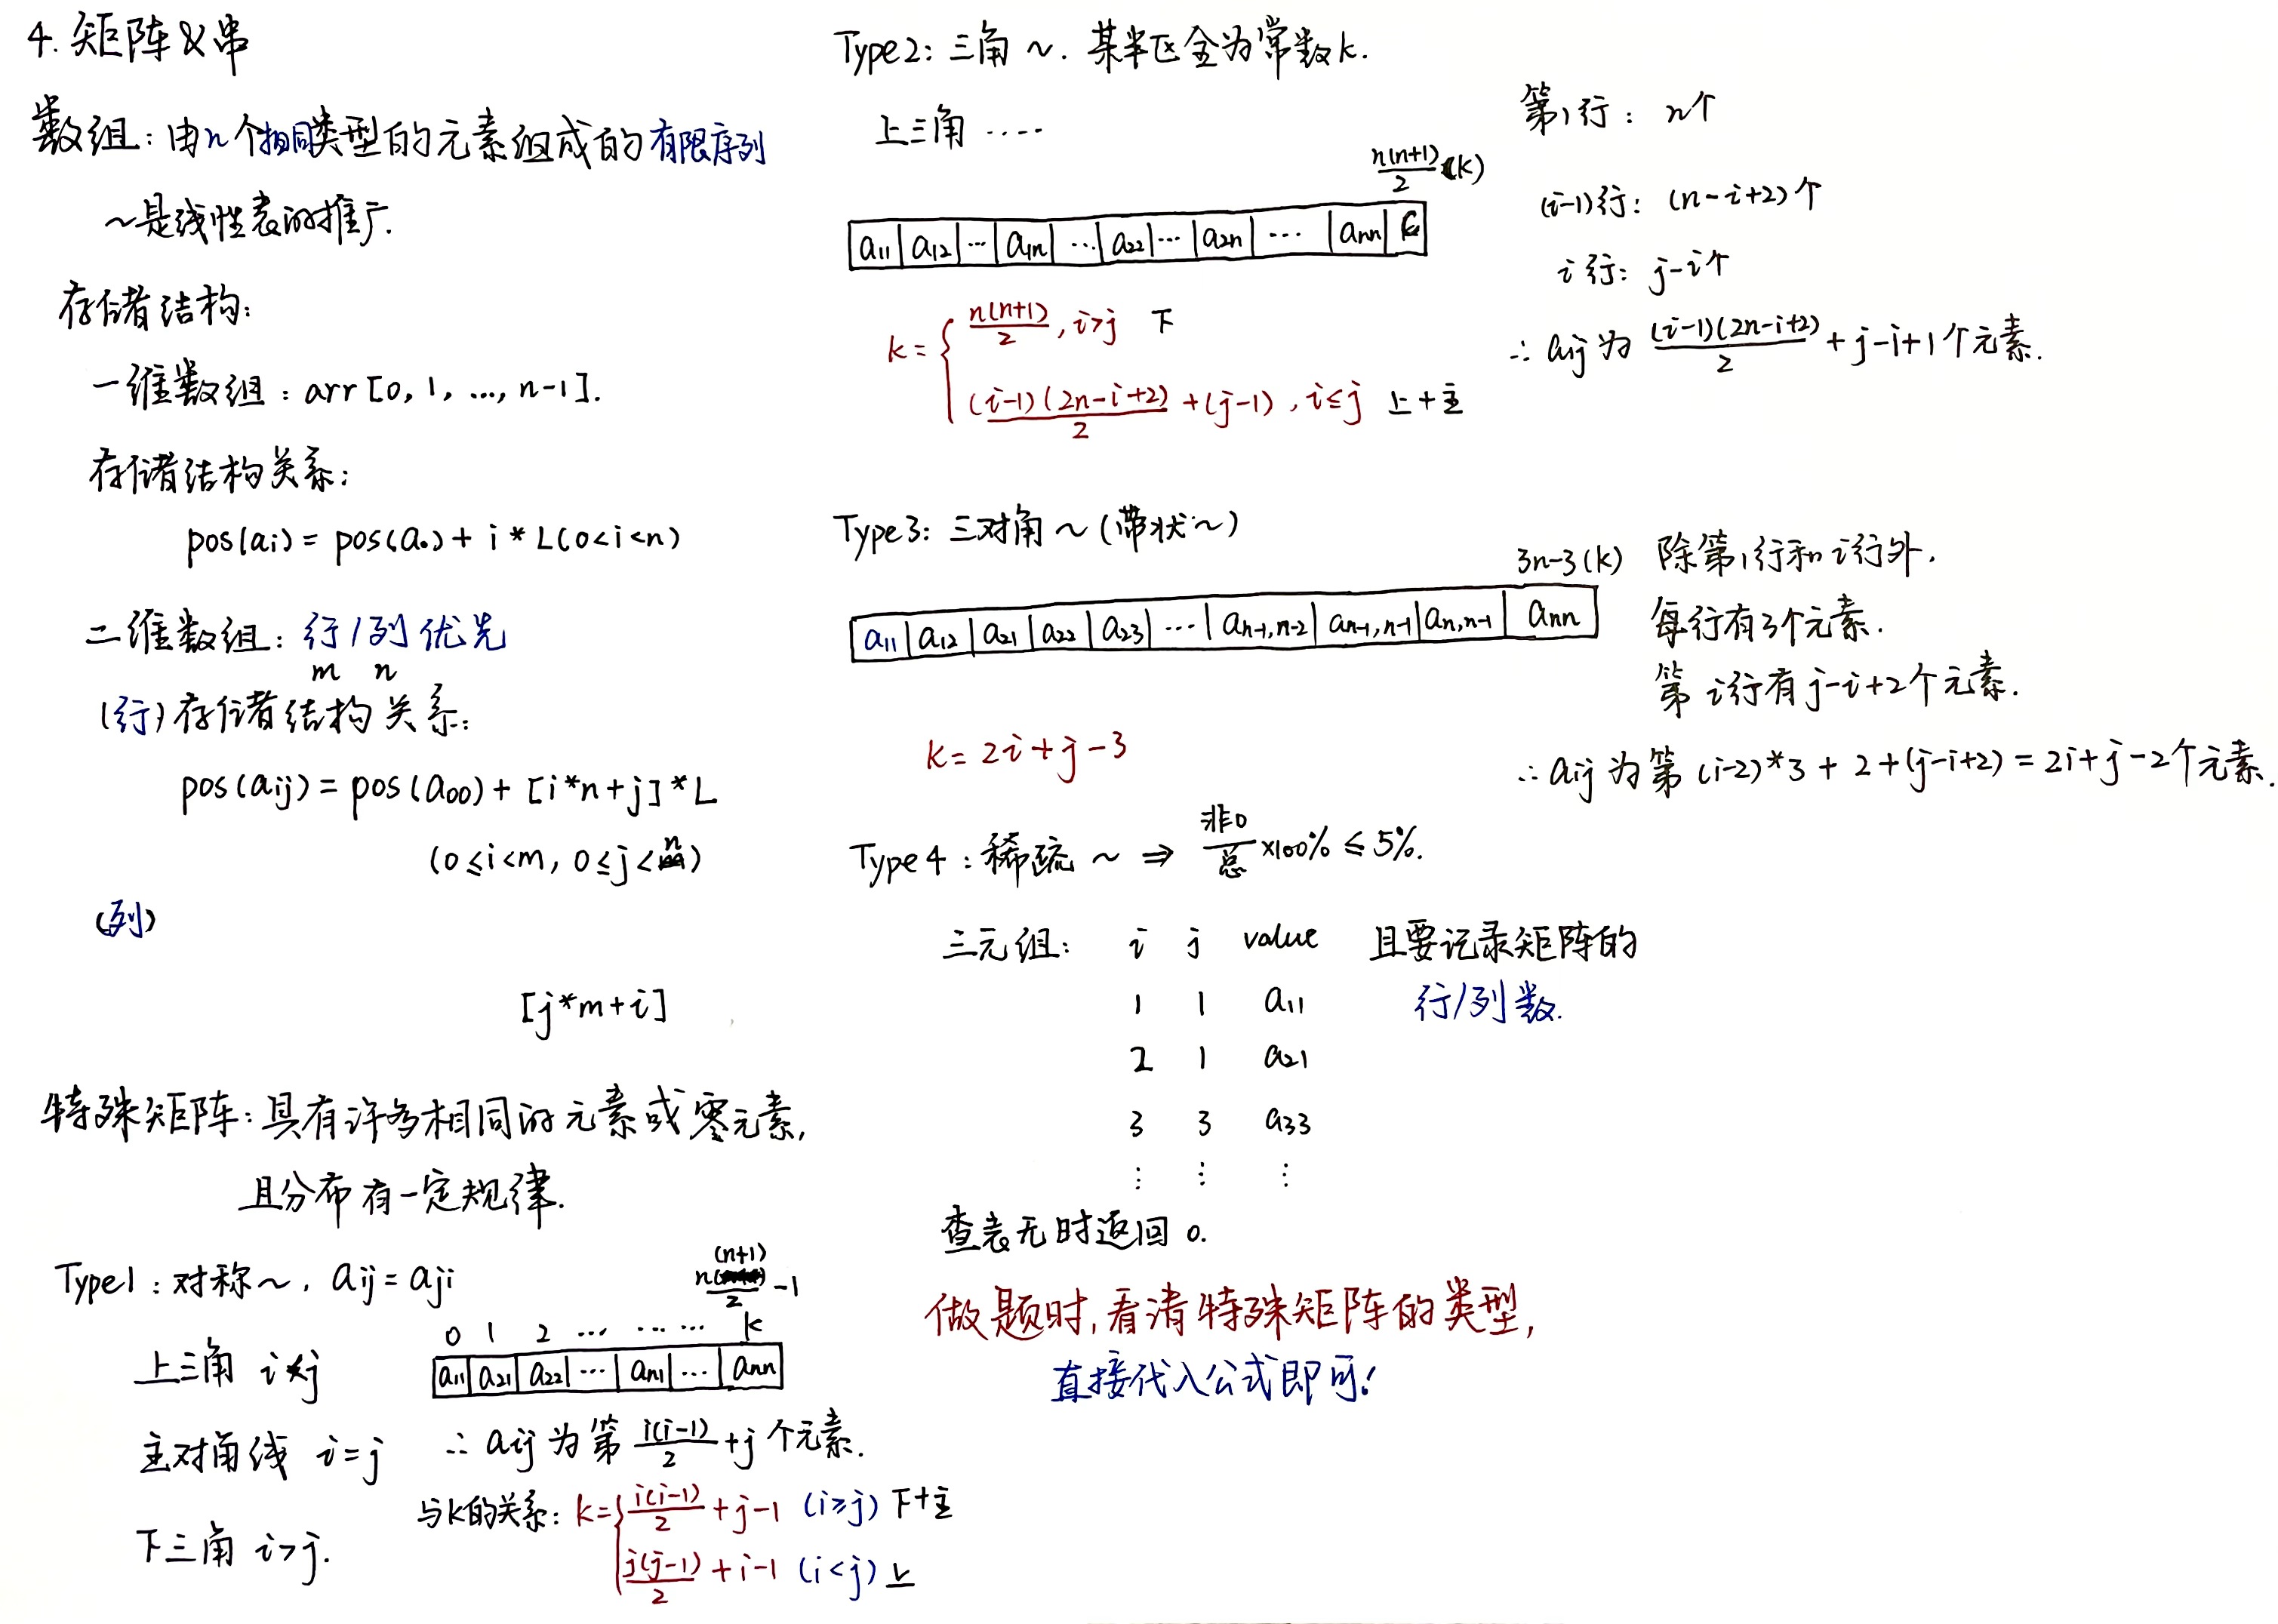 4. 矩阵 & 串
数组：由n个相同类型的元素组成的有限序列
～是线性表的推广.
存储结构：
一维数组：arr[0, 1, ..., n-1].
存储结构关系：
pos(ai) = pos(a0) + i * L(0<i<n)
二维数组：行/列优先
m n
(行)存储结构关系：
pos(aij) = pos(a00) + [i*n+j]*L
(0≤i<m, 0≤j<n)
(列)
[j*m+i]
特殊矩阵：具有许多相同的元素或零元素，
且分布有一定规律.
Type1：对称～, aij = aji
n(n+1)/2 -1
0 1 2 ... ... ... k
a11 | a21 | a22 | ... | an1 | ... | ann
上三角 i<j
主对角线 i=j
下三角 i>j.
∴ aij 为第 i(i-1)/2 + j 个元素.
与k的关系：k={ i(i-1)/2 + j-1 (i≥j) 下+主
j(j-1)/2 + i-1 (i<j) 上
Type2: 三角～. 某半区全为常数k.
上三角 ....
n(n+1)/2 (k)
a11 | a12 | ... | a1n | ... | a22 | ... | a2n | ... | ann | c
k = { n(n+1)/2, i>j 下
(i-1)(2n-i+2)/2 + (j-1), i≤j 上+主
第1行： n个
(i-1)行： (n-i+2)个
i行： j-i个
∴ aij 为 (i-1)(2n-i+2)/2 + j-i+1个元素.
Type3: 三对角～(带状～)
3n-3(k)
a11 | a12 | a21 | a22 | a23 | ... | an-1,n-2 | an-1,n-1 | an,n-1 | ann
k = 2i+j-3
除第1行和i行外，
每行有3个元素.
第i行有j-i+2个元素.
∴ aij 为第 (i-2)*3 + 2 + (j-i+2) = 2i+j-2个元素.
Type4：稀疏～ ⇒ 非0/总 ×100% ≤ 5%.
三元组： i j value 且要记录矩阵的
1 1 a11 行/列数.
2 1 a21
3 3 a33
⋮ ⋮ ⋮
查表无时返回0.
做题时,看清特殊矩阵的类型,
直接代入公式即可!